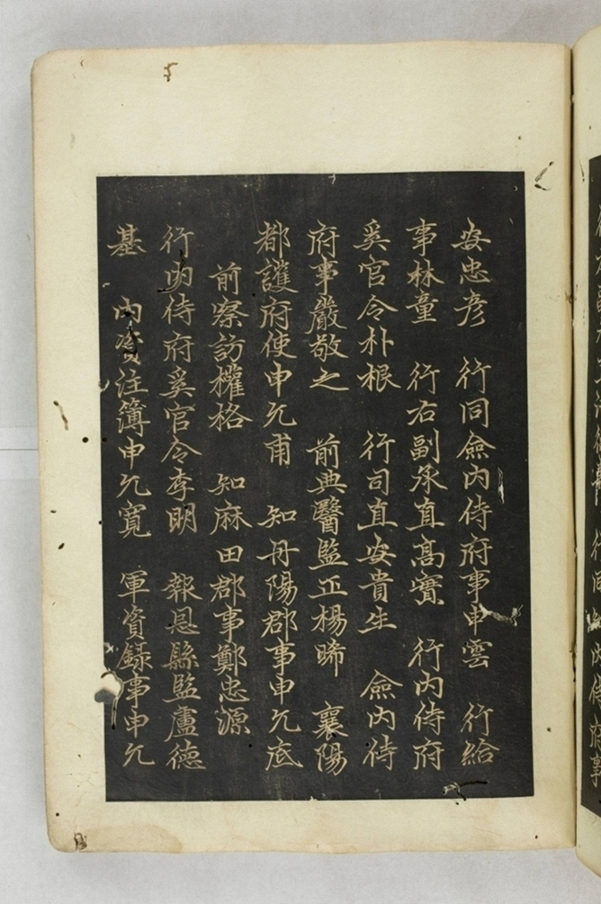 安忠彦 行同僉內侍府事申雲 行給
事林童 行右副承直高寶 行內侍府
奚官令朴根 行司直安貴生 僉內侍
府事嚴敬之 前典醫監正楊晞 襄陽
都護府使申允甫 知丹陽郡事申允底
前察訪權格 知麻田郡事鄭忠源
行內侍府奚官令李明 報恩縣監盧德
基 內資注簿申允寬 軍資錄事申允